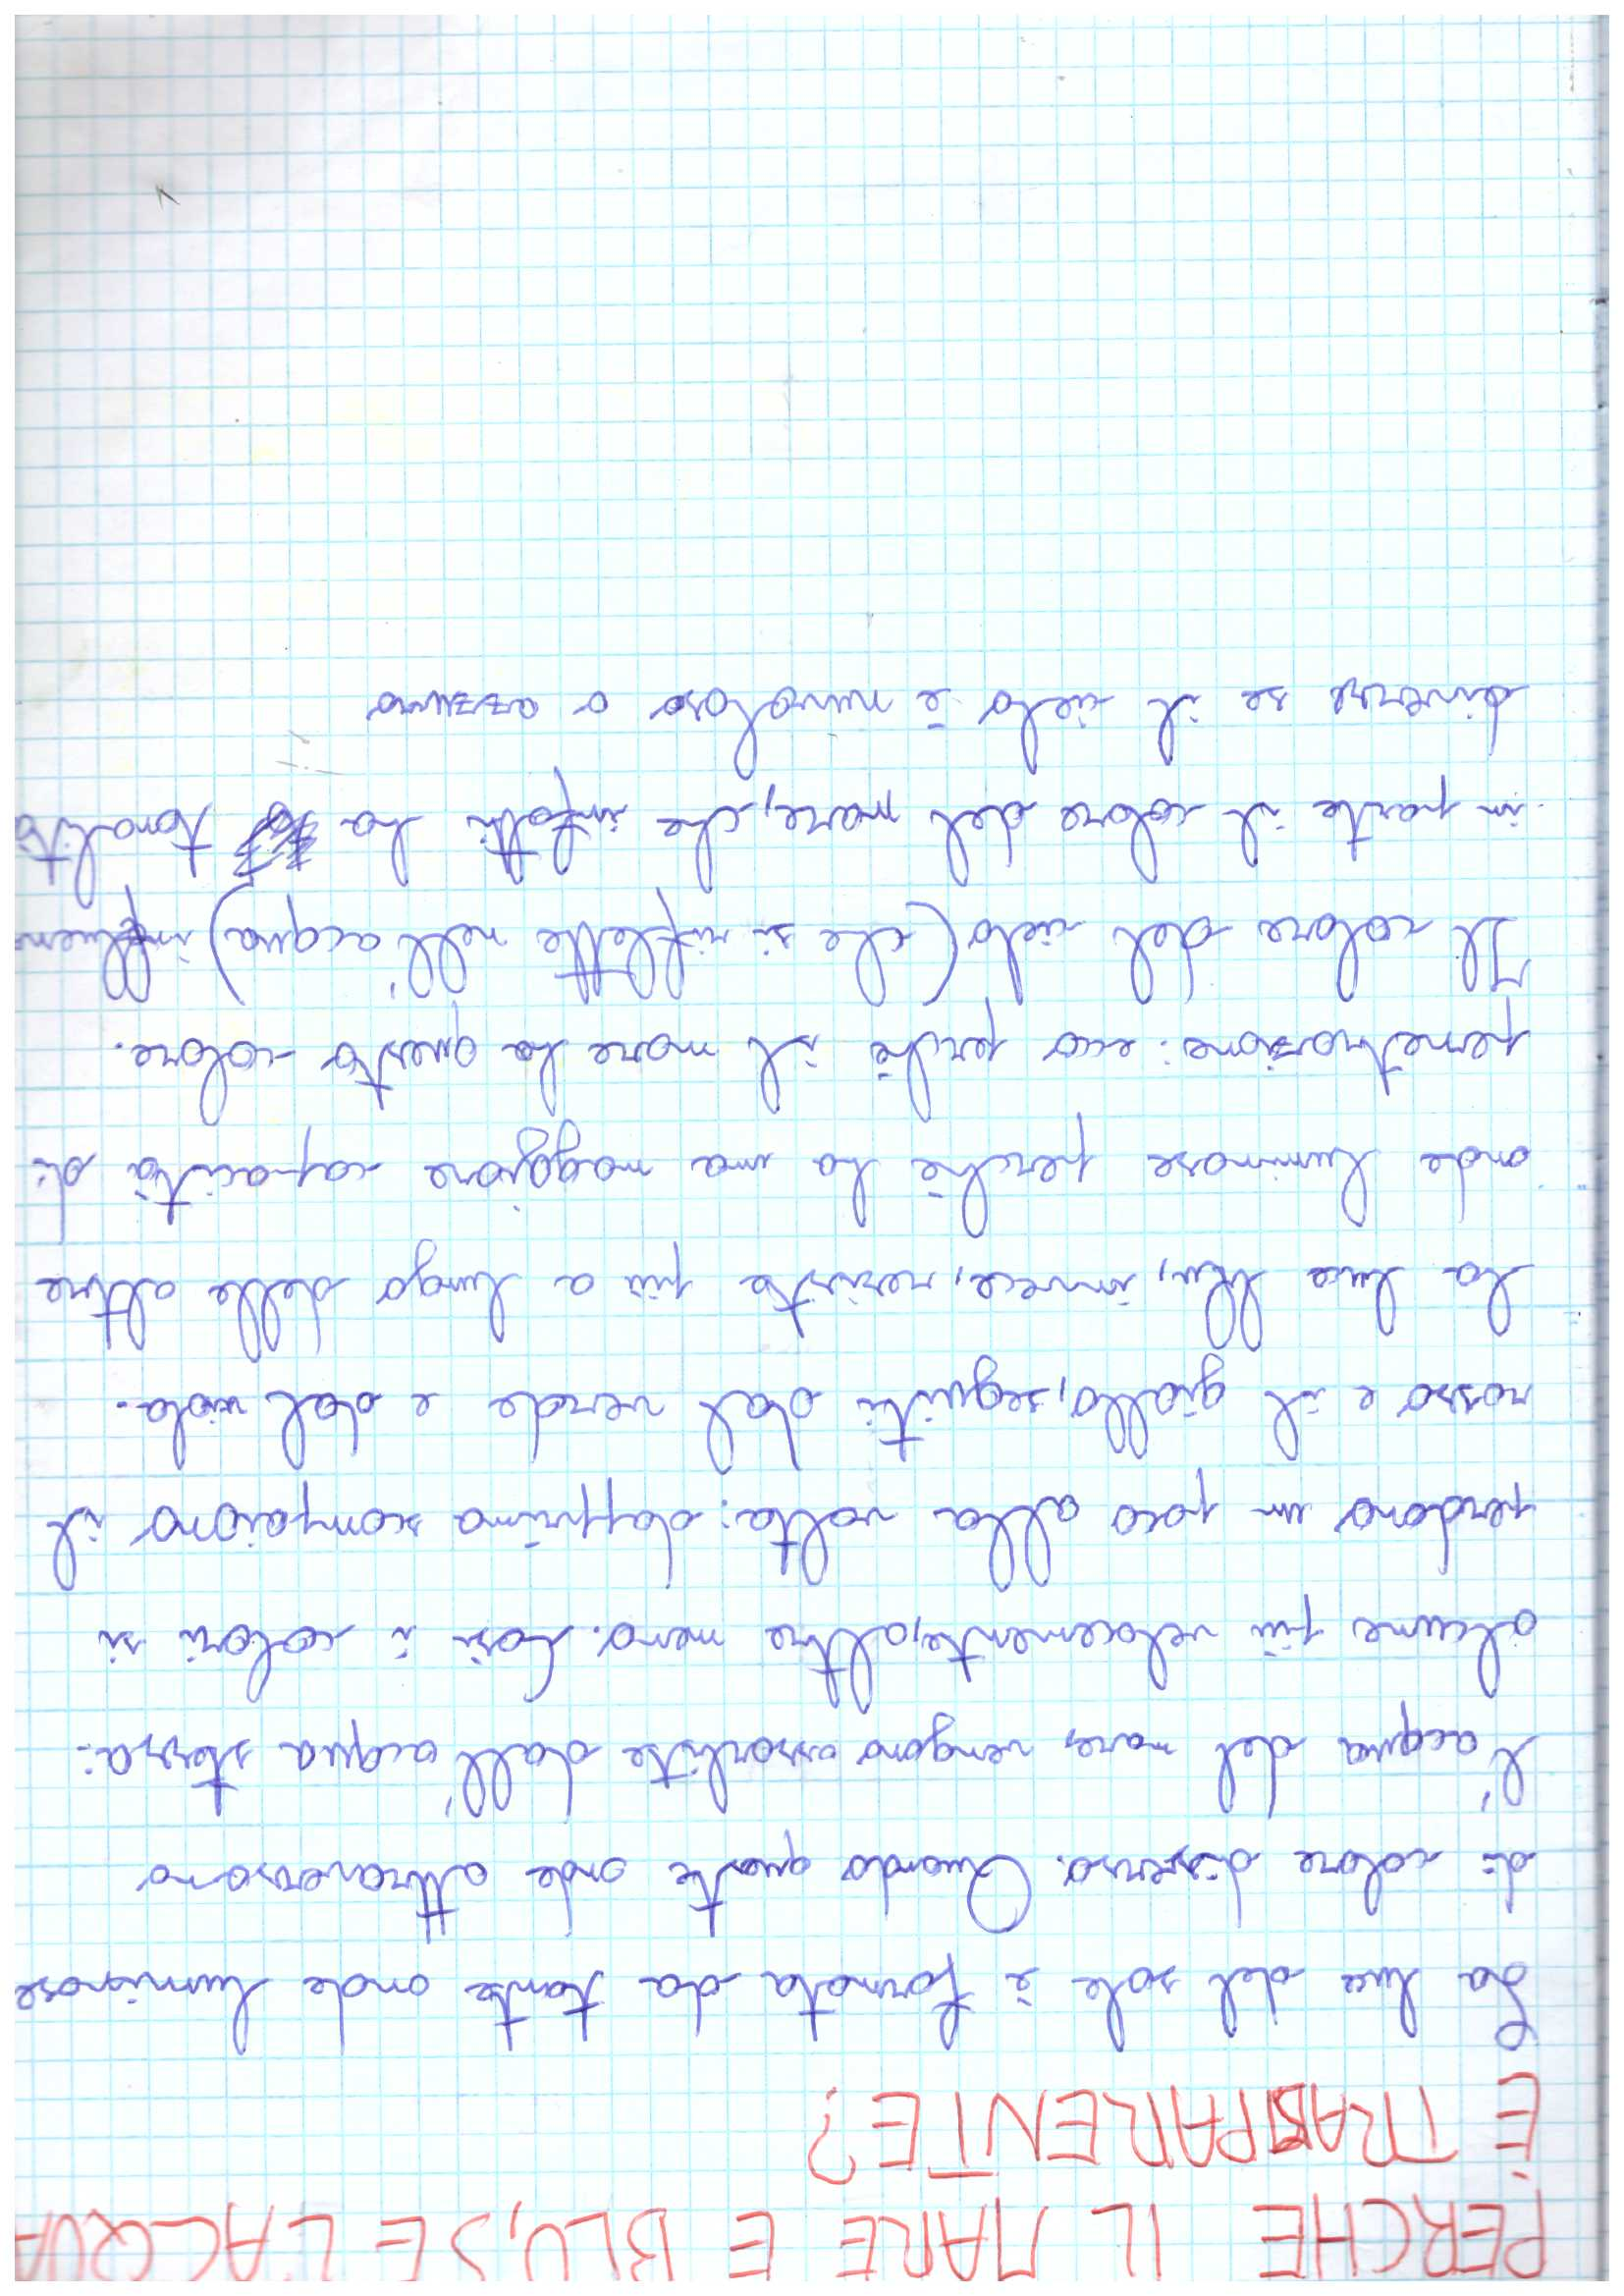 PERCHE IL MARE E BLU, SE L'ACQUA
È TRASPARENTE?
La luce del sole è formata da tante onde luminose
di colore diverso. Quando queste onde attraversano
l'acqua del mare, vengono assorbite dall'acqua stessa:
alcune più velocemente, altre meno. Così i colori si
perdono un poco alla volta: dapprima scompaiono il
rosso e il giallo, seguiti dal verde e dal viola.
La luce blu, invece, resiste più a lungo delle altre
onde luminose perchè ha una maggiore capacità di
penetrazione: ecco perchè il mare ha questo colore.
Il colore del cielo (che si riflette nell'acqua) influen
in parte il colore del mare, che infatti ha tonalità
diverse se il cielo è nuvoloso o azzurro